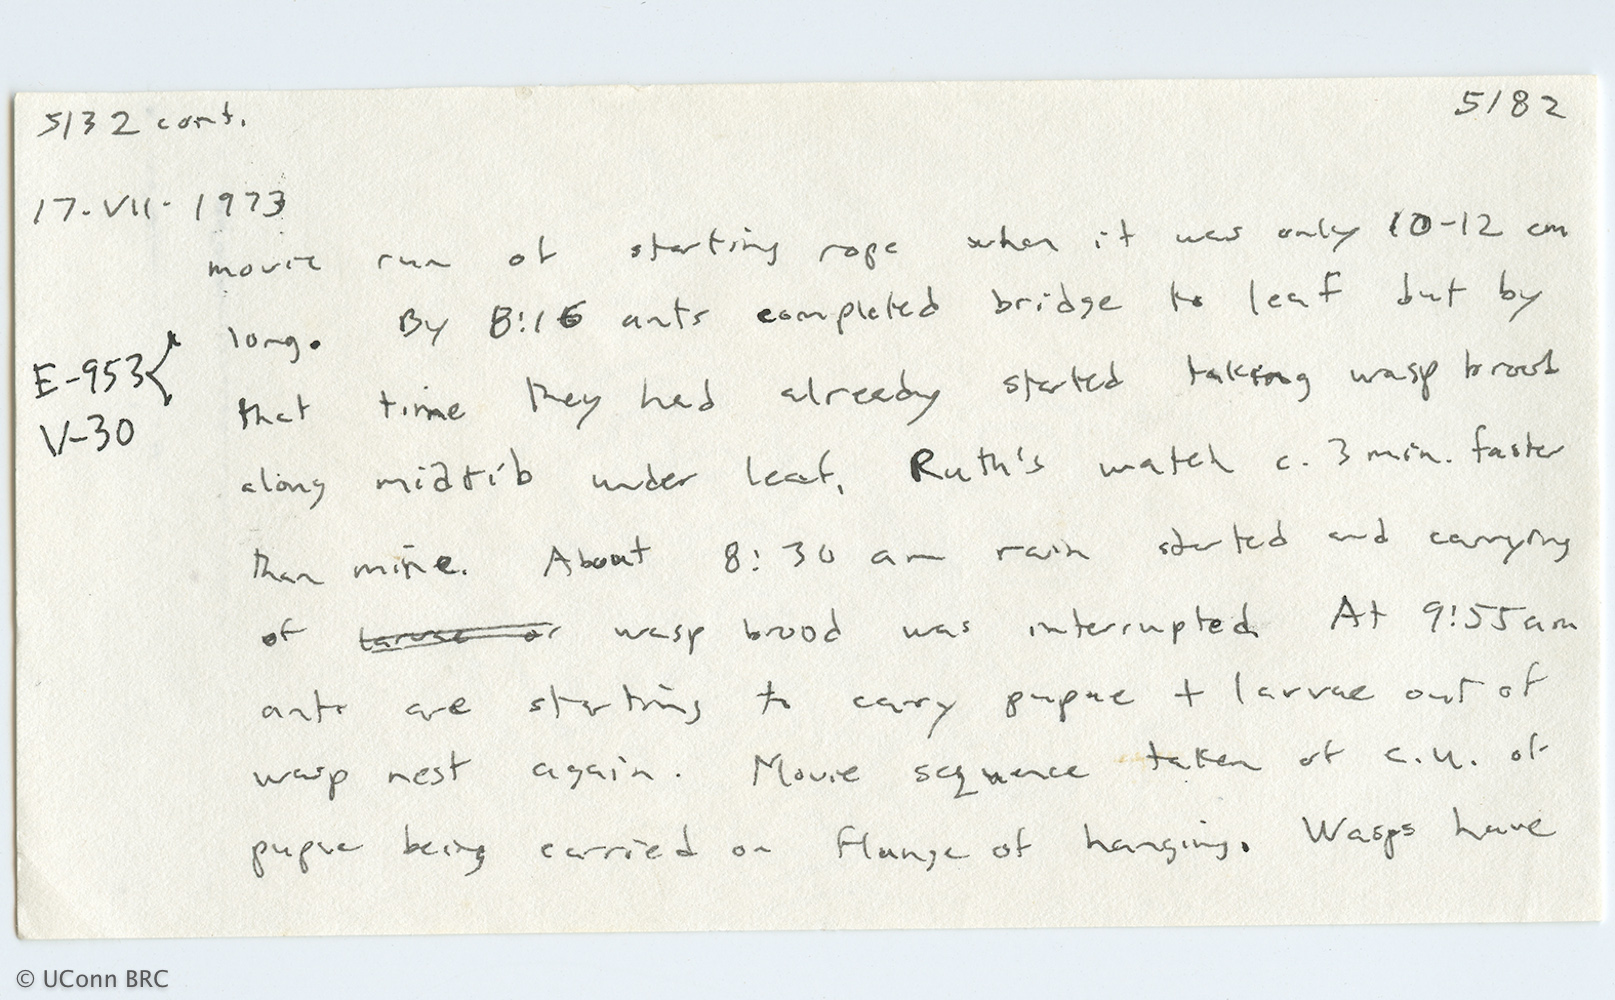 5132 cont.
5182
17-VII-1973
movie run of starting rope when it was only 10-12 cm
long. By 8:16 ants completed bridge to leaf but by
E-953
V-30
that time they had already started taking wasp brood
along midrib under leaf, Ruth's watch c. 3 min. faster
than mine. About 8:30 am rain started and carrying
of larvae or wasp brood was interrupted. At 9:55 am
ants are starting to carry pupae + larvae out of
wasp nest again. Movie sequence taken of c.u. of
pupae being carried on flange of hanging. Wasps have
© UConn BRC